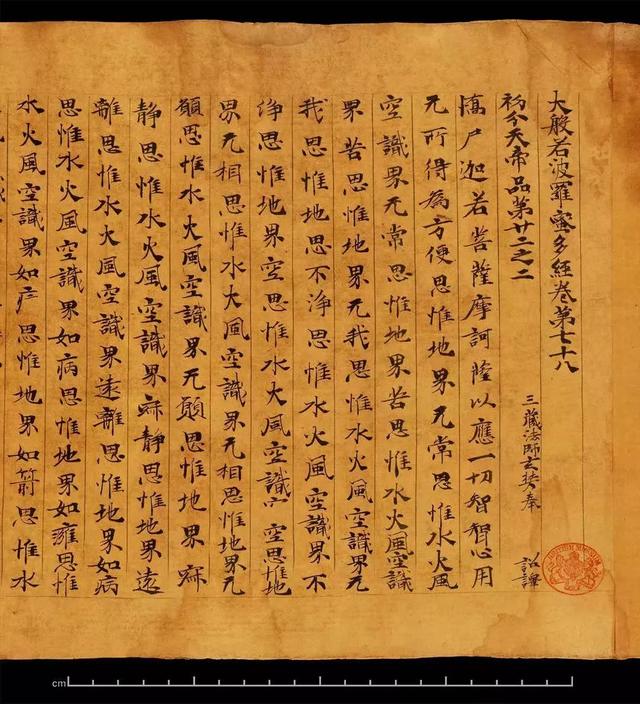 大般若波羅蜜多經卷第七十八
初分天帝品第廿二之二
三藏法師玄奘奉 詔譯
憍尸迦若菩薩摩訶薩以應一切智智心用
无所得為方便思惟地界无常思惟水火風
空識界无常思惟地界苦思惟水火風空識
界苦思惟地界无我思惟水火風空識界无
我思惟地思不淨思惟水火風空識界不
淨思惟地界空思惟水火風空識空思惟地
界无相思惟水火風空識界无相思惟地界无
願思惟水火風空識界无願思惟地界寂
靜思惟水火風空識界寂靜思惟地界遠
離思惟水火風空識界遠離思惟地界如病
思惟水火風空識界如病思惟地界如癰思惟
水火風空識界如疒思惟地界如箭思惟水
cm